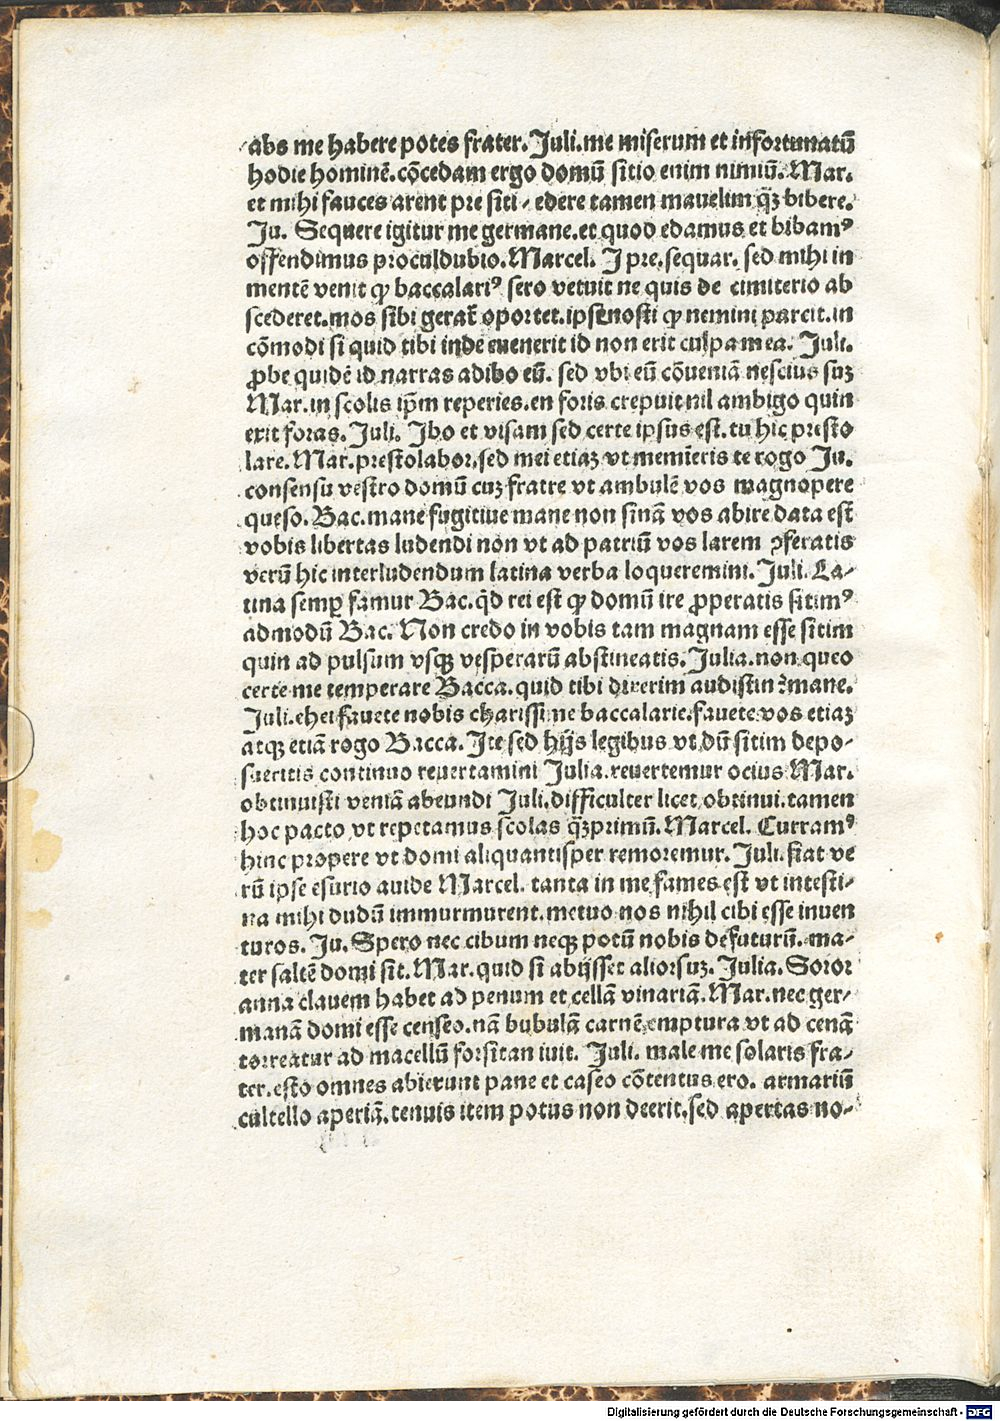 abs me habere potes frater. Juli. me miserum et infortunatū
hodie hominē. cōcedam ergo domū sitio enim nimiū. Mar.
et mihi fauces arent pre siti / edere tamen mauelim qꝫ̄ bibere.
Ju. Sequere igitur me germane. et quod edamus et bibamꝰ
offendimus proculdubio. Marcel. J pre. sequar. sed mihi in
mentē venit ꝙ baccalariꝰ sero vetuit ne quis de cimiterio ab
scederet. mos sibi gerat̄ oportet. ipse nosti ꝙ nemini parcit. in
cōmodi si quid tibi inde euenerit id non erit culpa mea. Juli.
ꝓbe quidē id narras adibo eū. sed vbi eū cōueniā nescius suꝫ
Mar. in scolis ip̄m reperies. en foris crepuit nil ambigo quin
exit foras. Juli. Jbo et visam sed certe ipsus est. tu hic presto
lare. Mar. prestolabor. sed mei etiaꝫ vt memīeris te rogo Ju.
consensu vestro domū cuꝫ fratre vt ambulē vos magnopere
queso. Bac. mane fugitiue mane non sinā vos abire data est
vobis libertas ludendi non vt ad patriū vos larem ꝓferatis
verū hic interludendum latina verba loqueremini. Juli. La/
tina semꝑ famur Bac. qd̄ rei est ꝙ domū ire ꝓperatis sitimꝰ
admodū Bac. Non credo in vobis tam magnam esse sitim
quin ad pulsum vsqꝫ vesperarū abstineatis. Julia. non queo
certe me temperare Bacca. quid tibi dixerim audistin? mane.
Juli. ehei fauete nobis charissime baccalarie. fauete vos etiaꝫ
atqꝫ etiā rogo Bacca. Jte sed hijs legibus vt dū sitim depo/
sueritis continuo reuertamini Julia. reuertemur ocius Mar.
obtinuisti veniā abeundi Juli. difficulter licet obtinui. tamen
hoc pacto vt repetamus scolas qꝫ̄primū. Marcel. Curramꝰ
hinc propere vt domi aliquantisper remoremur. Juli. fiat ve
rū ipse esurio auide Marcel. tanta in me fames est vt intesti/
na mihi dudū immurmurent. metuo nos nihil cibi esse inuen
turos. Ju. Spero nec cibum neqꝫ potū nobis defuturū. ma/
ter saltē domi sit. Mar. quid si abijsset aliorsuꝫ. Julia. Soror
anna clauem habet ad penum et cellā vinariā. Mar. nec ger/
manā domi esse censeo. nā bubulā carnē emptura vt ad cenā
torreatur ad macellū forsitan iuit. Juli. male me solaris fra/
ter. esto omnes abierunt pane et caseo cōtentus ero. armariū
cultello aperiā. tenuis item potus non deerit. sed apertas no/
Digitalisierung gefördert durch die Deutsche Forschungsgemeinschaft - DFG